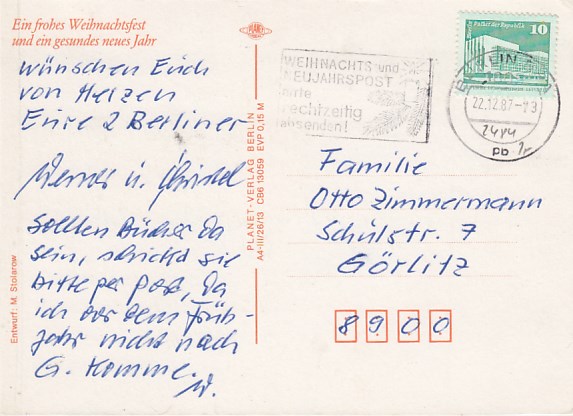 Ein frohes Weihnachtsfest
und ein gesundes neues Jahr
wünschen Euch
von Herzen
Eure 2 Berliner
Werner u. Christel
Sollten Bücher da
sein, schickt sie
bitte per Post, da
ich vor dem Früh-
jahr nicht nach
G. komme.
W.
Entwurf: M. Stolarow
PLANET
PLANET-VERLAG BERLIN
A4-III/26/13 C86 13059 EVP 0,15 M
WEIHNACHTS und
NEUJAHRSPOST
bitte
rechtzeitig
absenden!
Palast der Republik
10
BERLIN
22.12.87-13
pb
Familie
Otto Zimmermann
Schulstr. 7
Görlitz
8900